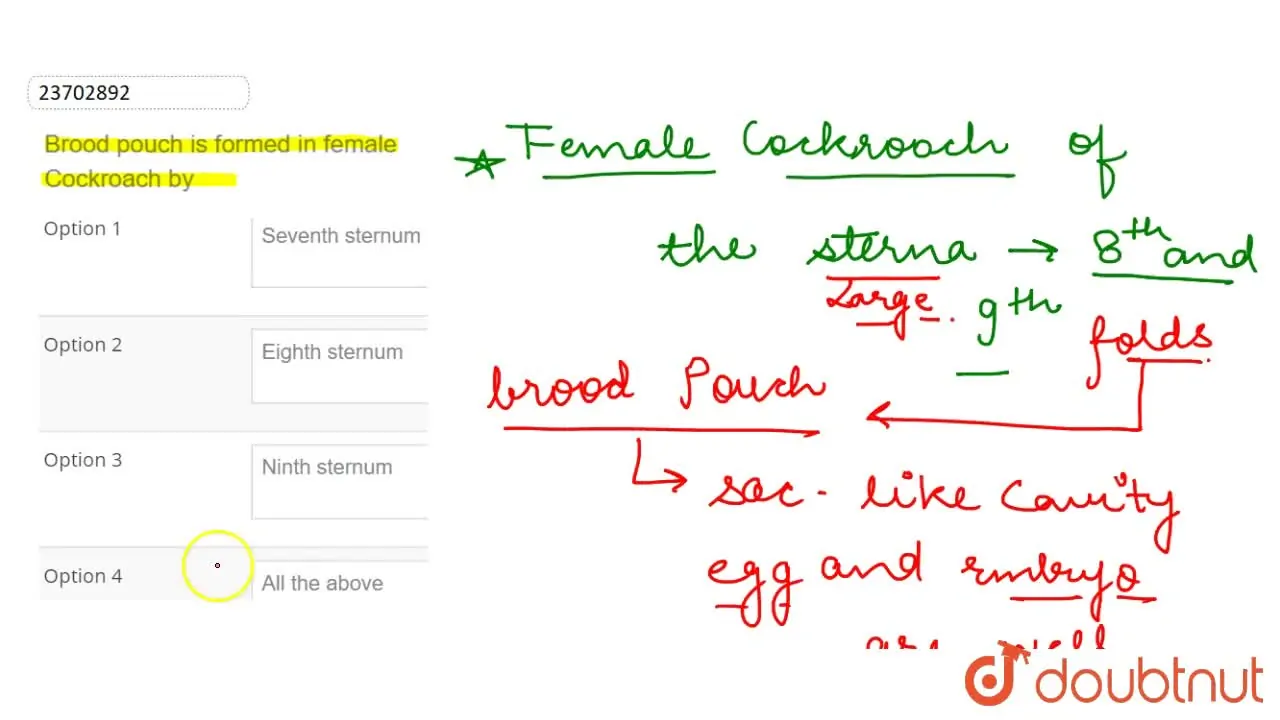 23702892
Brood pouch is formed in female
Cockroach by
Option 1
Seventh sternum
Option 2
Eighth sternum
Option 3
Ninth sternum
Option 4
All the above
Female Cockrooch of
the sterna → 8th and
Large. 9th folds
brood Pouch
sac - like Cavity
egg and embryo
are well
doubtnut